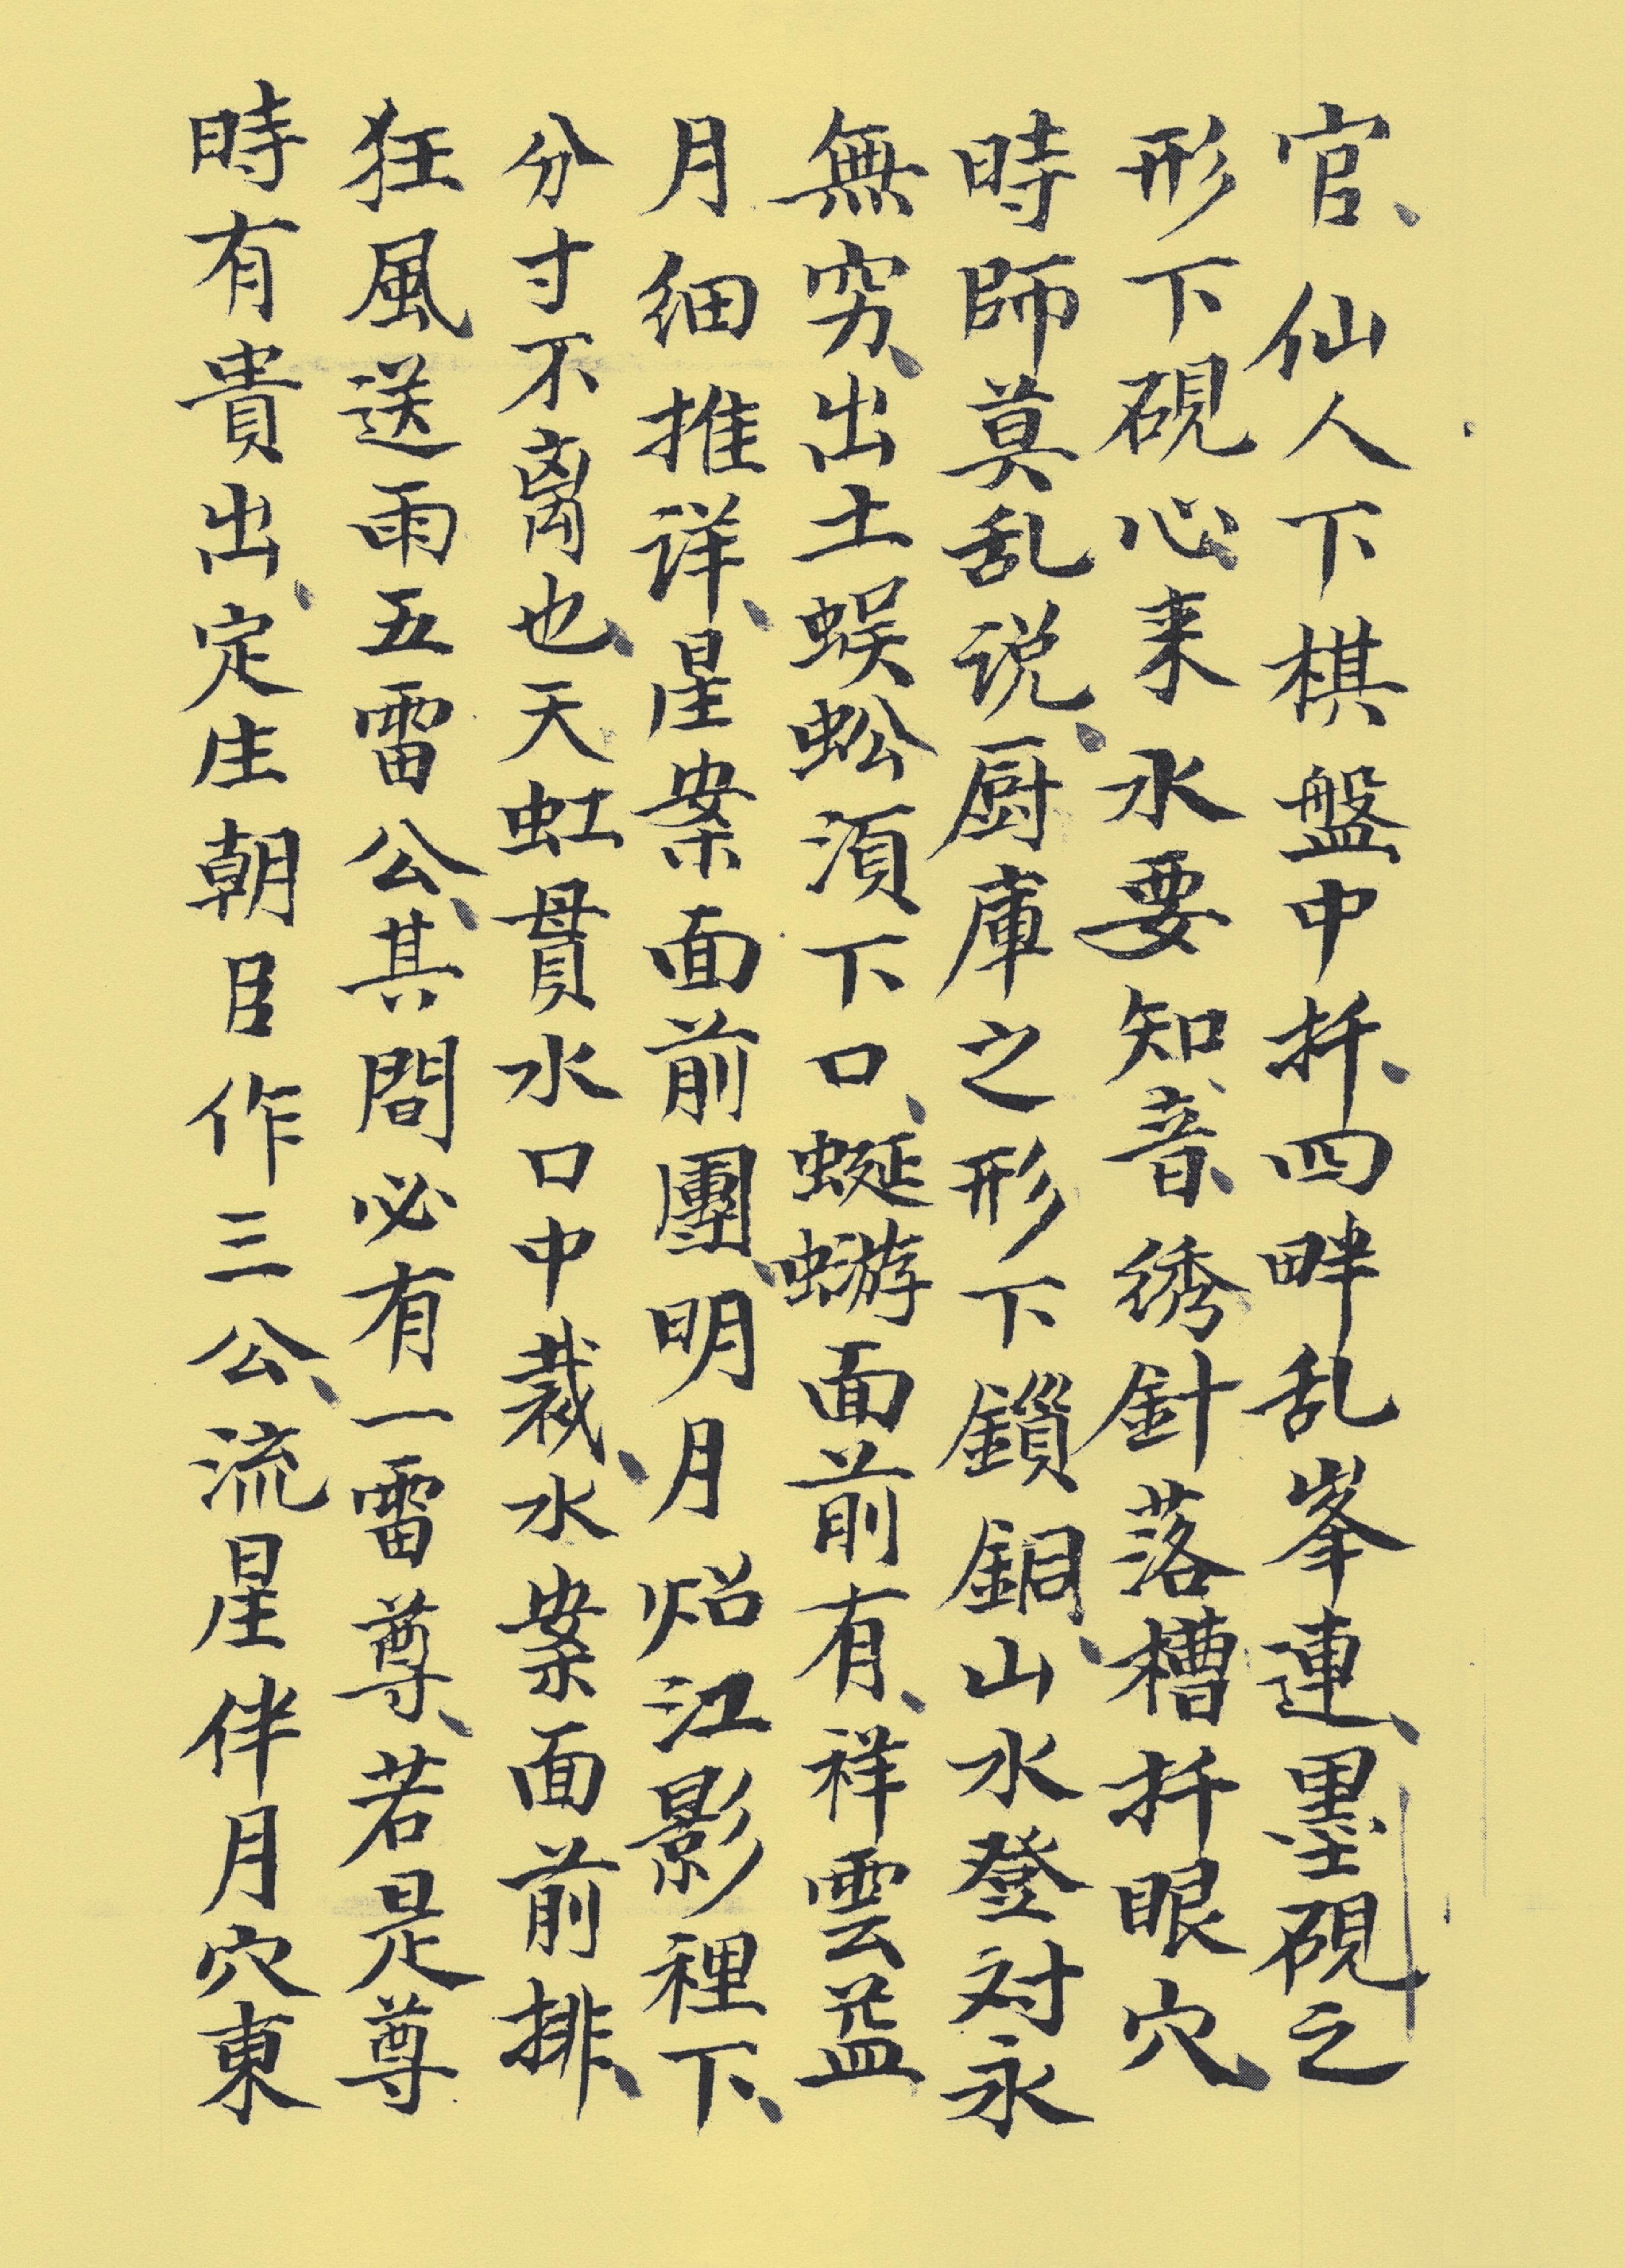 官、仙人下棋盤中扦、四畔乱峯連、墨硯之
形下硯心、来水要知音、綉針落槽扦眼穴、
時師莫乱说、厨庫之形下鎻鋼、山水登对永
無穷、出土蜈蚣須下口、蜒蝣面前有、祥雲盖
月细推详、星案面前團、明月炤江影裡下、
分寸不离也、天虹貫水口中裁、水案面前排、
狂風送雨五雷公、其間必有一雷尊、若是尊
時有貴出、定生朝臣作三公、流星伴月穴東